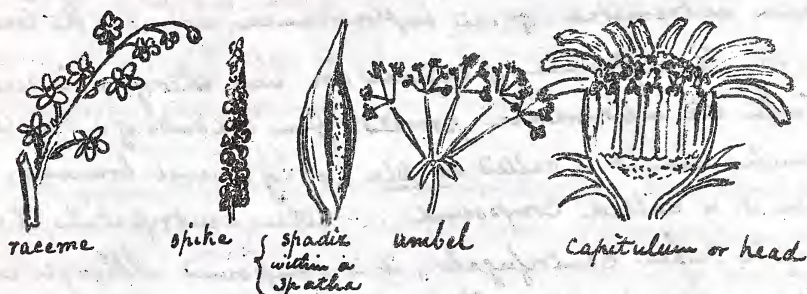 raceme
spike
{ spadix
within a
spatha
umbel
capitulum or head